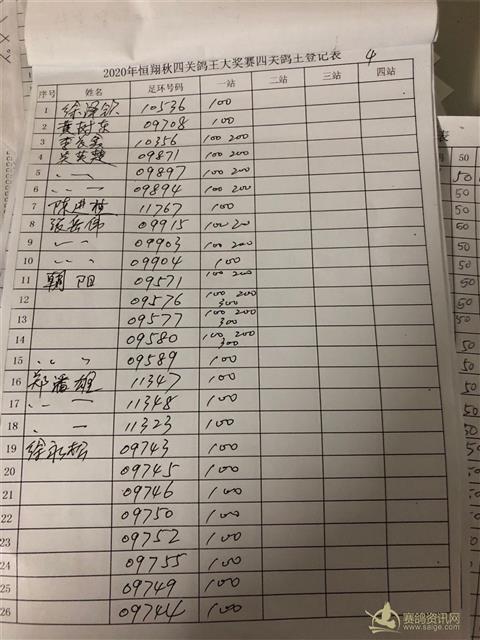 2020年恒翔秋四关鸽王大奖赛四关鸽王登记表 4
序号 姓名 足环号码 一站 二站 三站 四站
1 10536 100
2 黄树东 09708 100
3 10356 100 200
4 吴英楚 09871 100 200
5 〃 〃 09897 100 200
6 〃 〃 09894 100 200
7 11767 100
8 张岳伟 09915 100 20
9 〃 〃 09903 100 200
10 〃 〃 09904 100
11 朝阳 09571 100 200
12 09576 100 200 300
13 09577 100 200 300
14 09580 100 200 300
15 〃 〃 〃 09589 100
16 11347 100
17 〃 〃 11348 100
18 〃 〃 11323 100
19 徐永松 09743 100
20 09745 100
21 09746 100
22 09750 100
23 09752 100
24 09755 100
25 09749 100
26 09744 100
表
50
50
50
50
50
50
50
50
50
50
50
50
50
50
赛鸽资讯网
www.saige.com